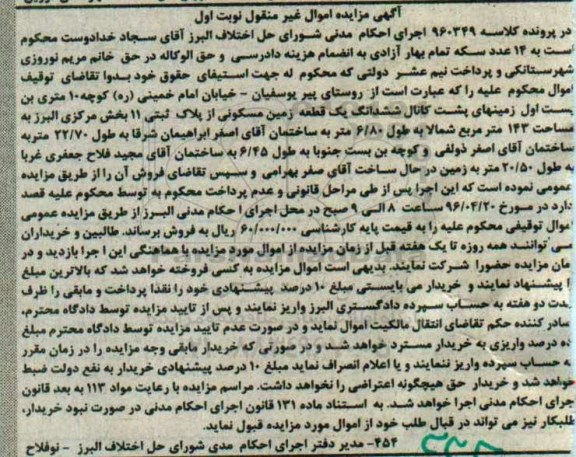 آگهی مزایده اموال غیر منقول نوبت اول
در پرونده کلاسه ۹۶۰۳۴۹ اجرای احکام مدنی شورای حل اختلاف البرز آقای سجاد خدادوست محکوم
است به ۱۴ عدد سکه تمام بهار آزادی به انضمام هزینه دادرسی و حق الوکاله در حق خانم مریم نوروزی
شهرستانکی و پرداخت نیم عشر دولتی که محکوم له جهت استیفای حقوق خود بدوا تقاضای توقیف
اموال محکوم علیه را که عبارت است از روستای پیر یوسفیان - خیابان امام خمینی (ره) کوچه ۱۰ متری بن
بست اول زمینهای پشت کانال ششدانگ یک قطعه زمین مسکونی از پلاک ثبتی ۱۱ بخش مرکزی البرز به
مساحت ۱۴۳ متر مربع شمالا به طول ۶/۸۰ متر به ساختمان آقای اصغر ابراهیمیان شرقا به طول ۲۲/۷۰ متر به
ساختمان آقای اصغر ذولفی و کوچه بن بست جنوبا به طول ۶/۴۵ به ساختمان آقای مجید فلاح جعفری غربا
به طول ۲۰/۵۰ متر به زمین در حال ساخت آقای صفر بهرامی و سپس تقاضای فروش آن را از طریق مزایده
عمومی نموده است که این اجرا پس از طی مراحل قانونی و عدم پرداخت محکوم به توسط محکوم علیه قصد
دارد در مورخ ۹۶/۰۴/۲۰ ساعت ۸ الی ۹ صبح در محل اجرای ا حکام مدنی البرز از طریق مزایده عمومی
اموال توقیفی محکوم علیه را به قیمت پایه کارشناسی ۶۰/۰۰۰/۰۰۰ ریال به فروش برساند. طالبین و خریداران
می توانند همه روزه تا یک هفته قبل از زمان مزایده از اموال مورد مزایده با هماهنگی این ا جرا بازدید و در
مان مزایده حضورا شرکت نمایند. بدیهی است اموال مزایده به کسی فروخته خواهد شد که بالاترین مبلغ
را پیشنهاد نمایند و خریدار می بایستی مبلغ ۱۰ درصد پیشنهادی خود را نقدا پرداخت و مابقی را ظرف
مدت دو هفته به حساب سپرده دادگستری البرز واریز نمایند و پس از تایید مزایده توسط دادگاه محترم،
صادر کننده حکم تقاضای انتقال مالکیت اموال نماید و در صورت عدم تایید مزایده توسط دادگاه محترم مبلغ
ده درصد واریزی به خریدار مسترد خواهد شد و در صورتی که خریدار مابقی وجه مزایده را در زمان مقرر
به حساب سپرده واریز ننمایند و یا اعلام انصراف نماید مبلغ ۱۰ درصد پیشنهادی خریدار به نفع دولت ضبط
خواهد شد و خریدار حق هیچگونه اعتراضی را نخواهد داشت. مراسم مزایده با رعایت مواد ۱۱۳ به بعد قانون
جرای احکام مدنی اجرا خواهد شد. به استناد ماده ۱۳۱ قانون اجرای احکام مدنی در صورت نبود خریدار،
طلبکار نیز می تواند در قبال طلب خود از اموال مورد مزایده قبول نماید.
۴۵۴- مدیر دفتر اجرای احکام مدی شورای حل اختلاف البرز - نوفلاح